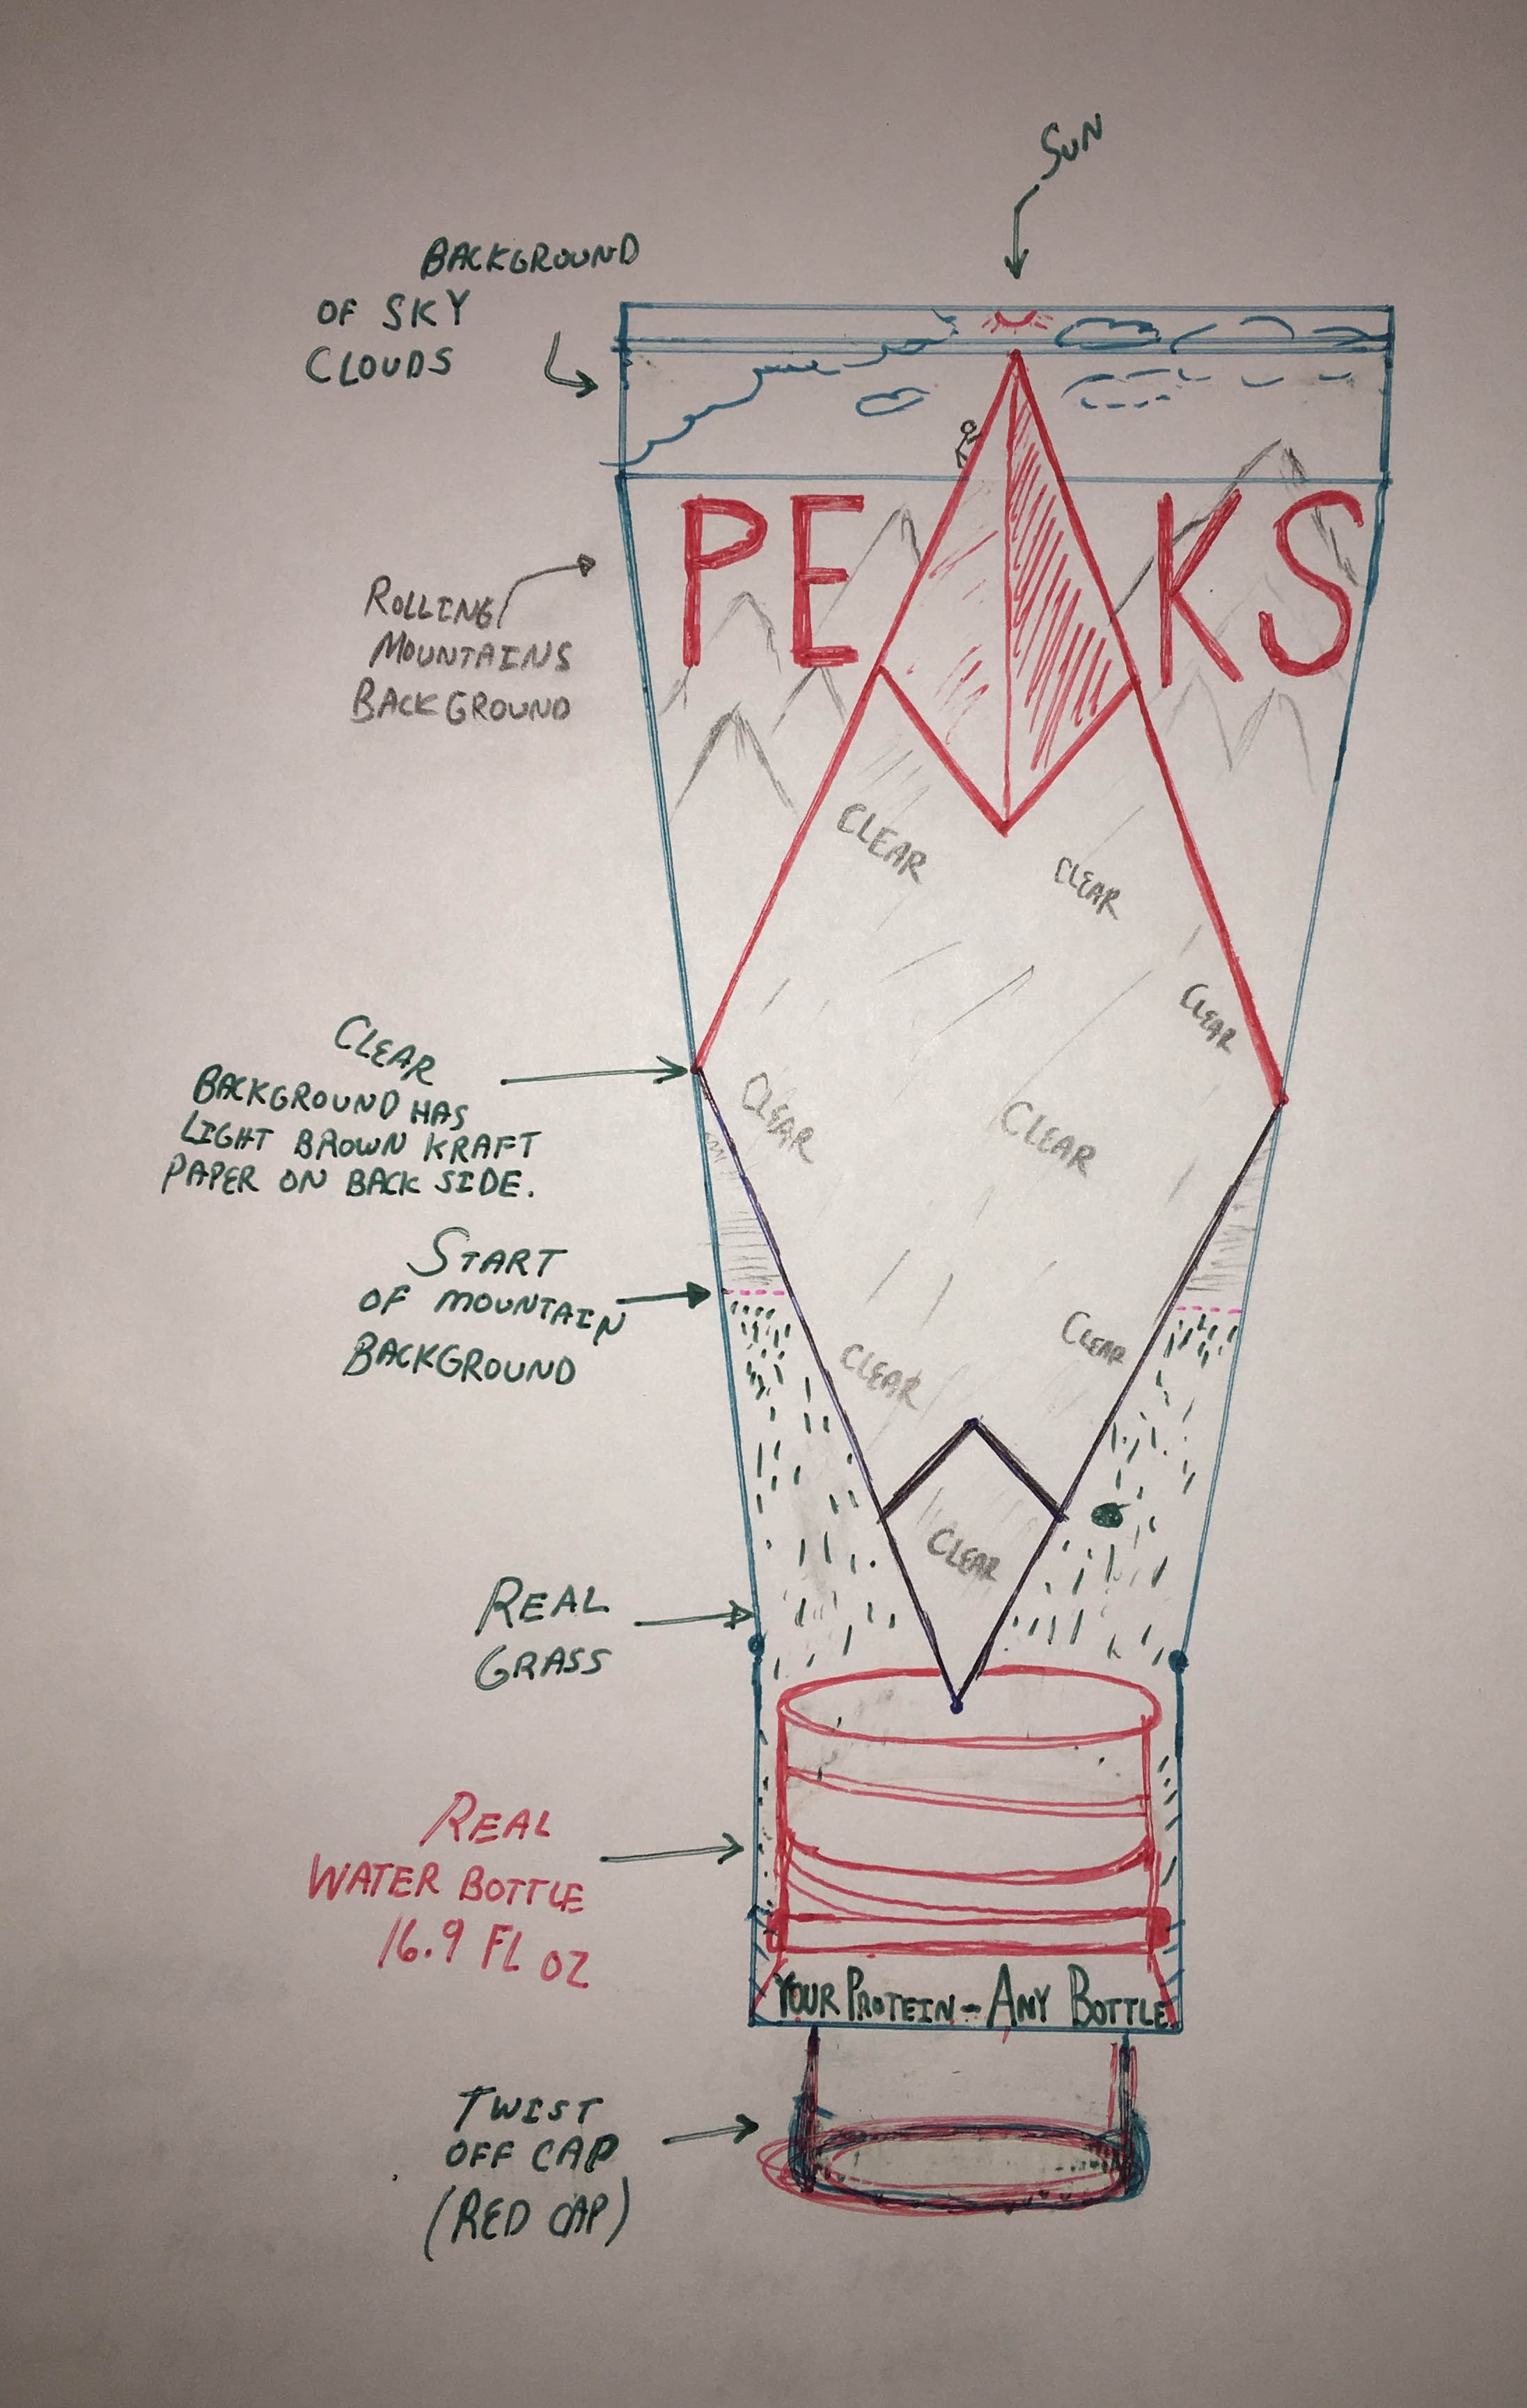 SUN
BACKGROUND
OF SKY
CLOUDS
PE KS
ROLLING
MOUNTAINS
BACKGROUND
CLEAR
CLEAR
CLEAR
CLEAR
BACKGROUND HAS
LIGHT BROWN KRAFT
PAPER ON BACK SIDE.
CLEAR
CLEAR
START
OF MOUNTAIN
BACKGROUND
CLEAR
CLEAR
CLEAR
REAL
GRASS
REAL
WATER BOTTLE
16.9 FL OZ
YOUR PROTEIN - ANY BOTTLE
TWIST
OFF CAP
(RED CAP)